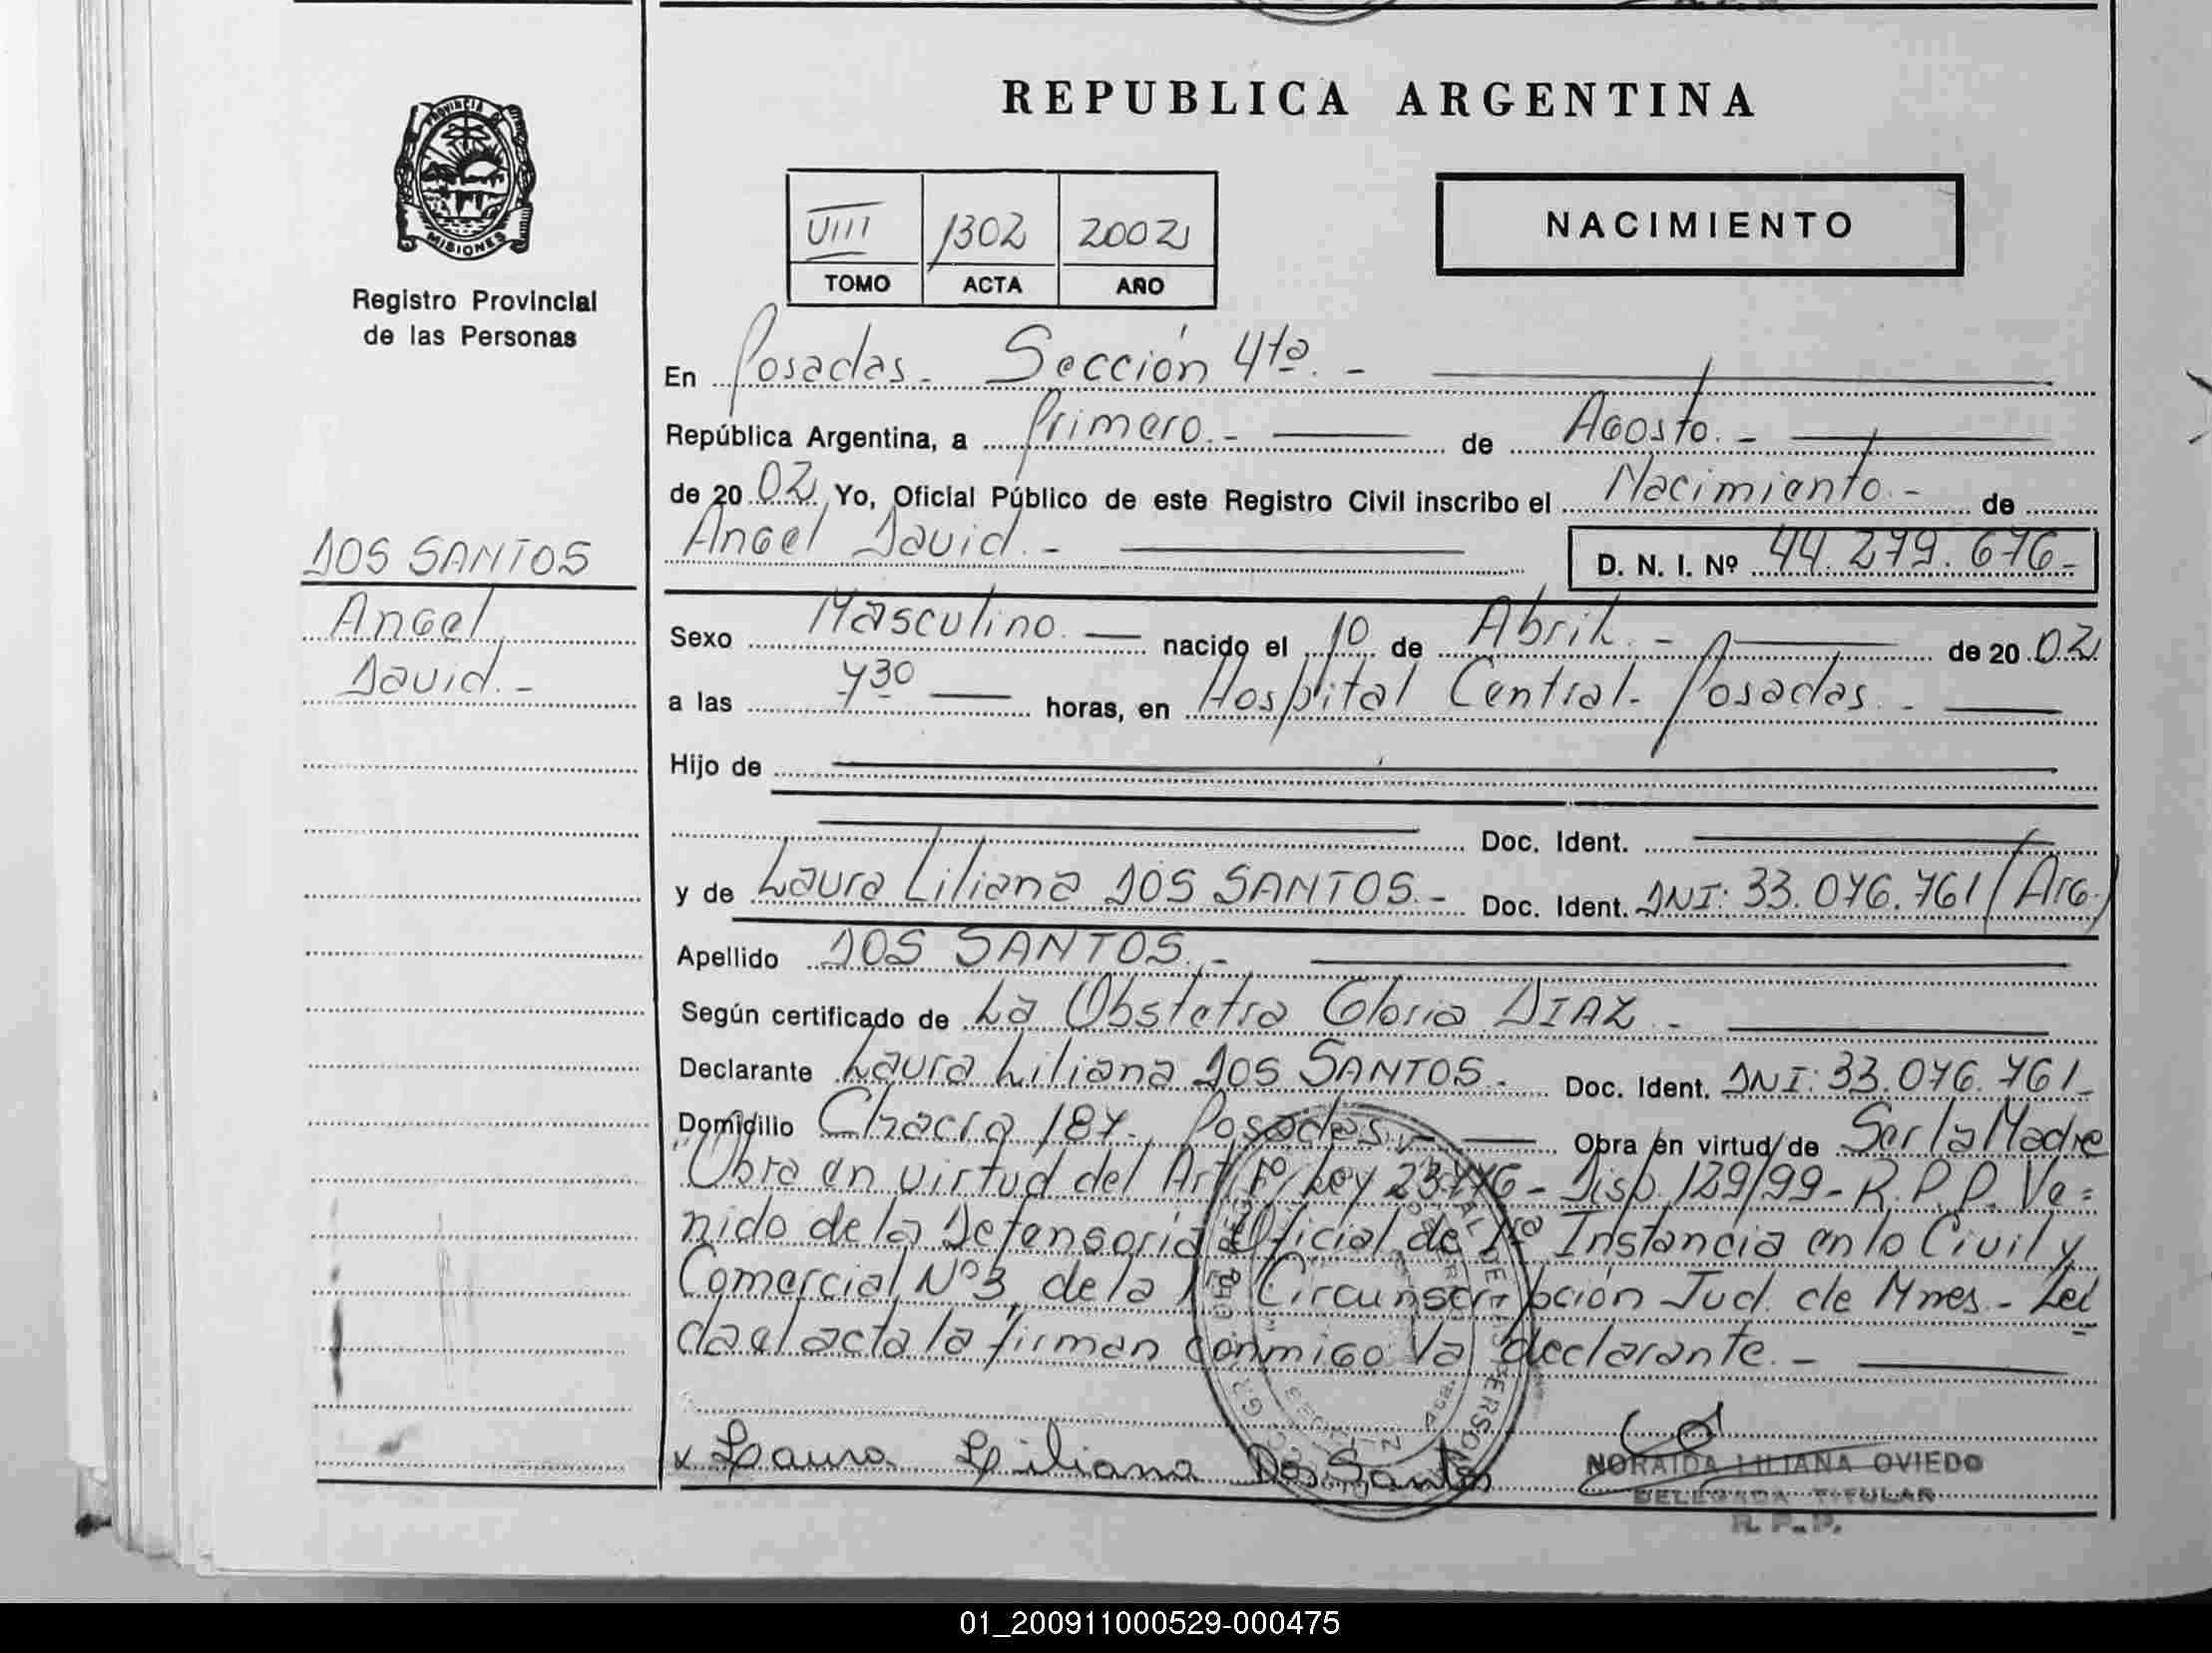 REPUBLICA ARGENTINA
PROVINCIA DE
MISIONES
Registro Provincial
de las Personas
VIII 1302 2002
TOMO ACTA AÑO
NACIMIENTO
En Posadas - Sección 4ta. -
República Argentina, a Primero. - de Agosto. -
de 20 02 Yo, Oficial Público de este Registro Civil inscribo el Nacimiento - de
Angel David. - D. N. I. Nº 44.279.676-
DOS SANTOS
Angel
David. -
Sexo Masculino. nacido el 10 de Abril. - de 20 02
a las 7 30 horas, en Hospital Central - Posadas. -
Hijo de
Doc. Ident.
y de Laura Liliana DOS SANTOS. - Doc. Ident. DNI: 33.076.761 (Arg.)
Apellido DOS SANTOS. -
Según certificado de La Obstetra Gloria DIAZ. -
Declarante Laura Liliana DOS SANTOS. - Doc. Ident. DNI: 33.076.761-
Domicilio Chacra 187. Posadas. - Obra en virtud de Ser la Madre
"Obra en virtud del Art. 1º Ley 23776 - Disp. 129/99 - R.P.P. Ve=
nido de la Defensoria Oficial de 1ra Instancia en lo Civil y
Comercial Nº 3, de la 1ra Circunscripción Jud. de Mnes. - Leí
da el acta la firman conmigo la declarante. -
x Laura Liliana Dos Santos
NORAIDA LILIANA OVIEDO
DELEGADA TITULAR
R. P. P.
01_200911000529-000475